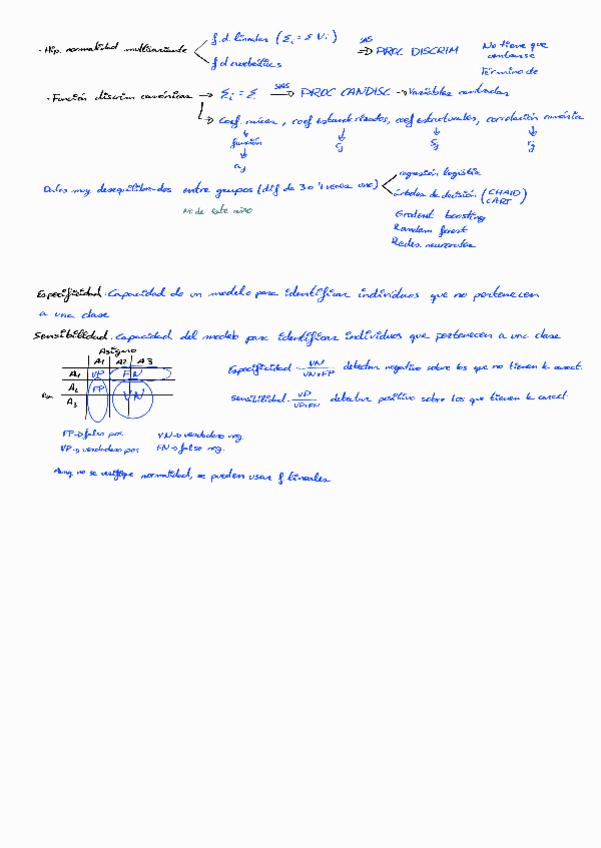 · Hip. normalidad multivariante
f.d. lineales (Σi = Σ ∀i)
f d cuadráticas
SAS
⇒ PROC DISCRIM
No tiene que
centrarse
Término de
· Función discrim canónicas → Σi = Σ SAS → PROC CANDISC → Variables centradas
↳ Coef. , coef estandarizados, coef estructurales, correlación canónica
función
aj cj sj rj
Datos muy desequilibrados entre grupos (dif de 3 o 4 veces uno)
No de este año
regresión logística
árboles de decisión (CHAID CART)
Gradient boosting
Random forest
Redes neuronales
Especificidad. Capacidad de un modelo para identificar individuos que no pertenecen
a una clase
Sensibilidad. Capacidad del modelo para identificar individuos que pertenecen a una clase
Asigno
A1 A2 A3
A1 VP FN
A2 FP VN
A3
Especificidad - VN / VN+FP detectar negativo sobre los que no tienen la caract.
Sensibilidad. VP / VP+FN detectar positivo sobre los que tienen la caract.
FP → falso pos. VN → verdadero neg.
VP → verdadero pos FN → falso neg.
Aunq no se verifique normalidad, se pueden usar f lineales